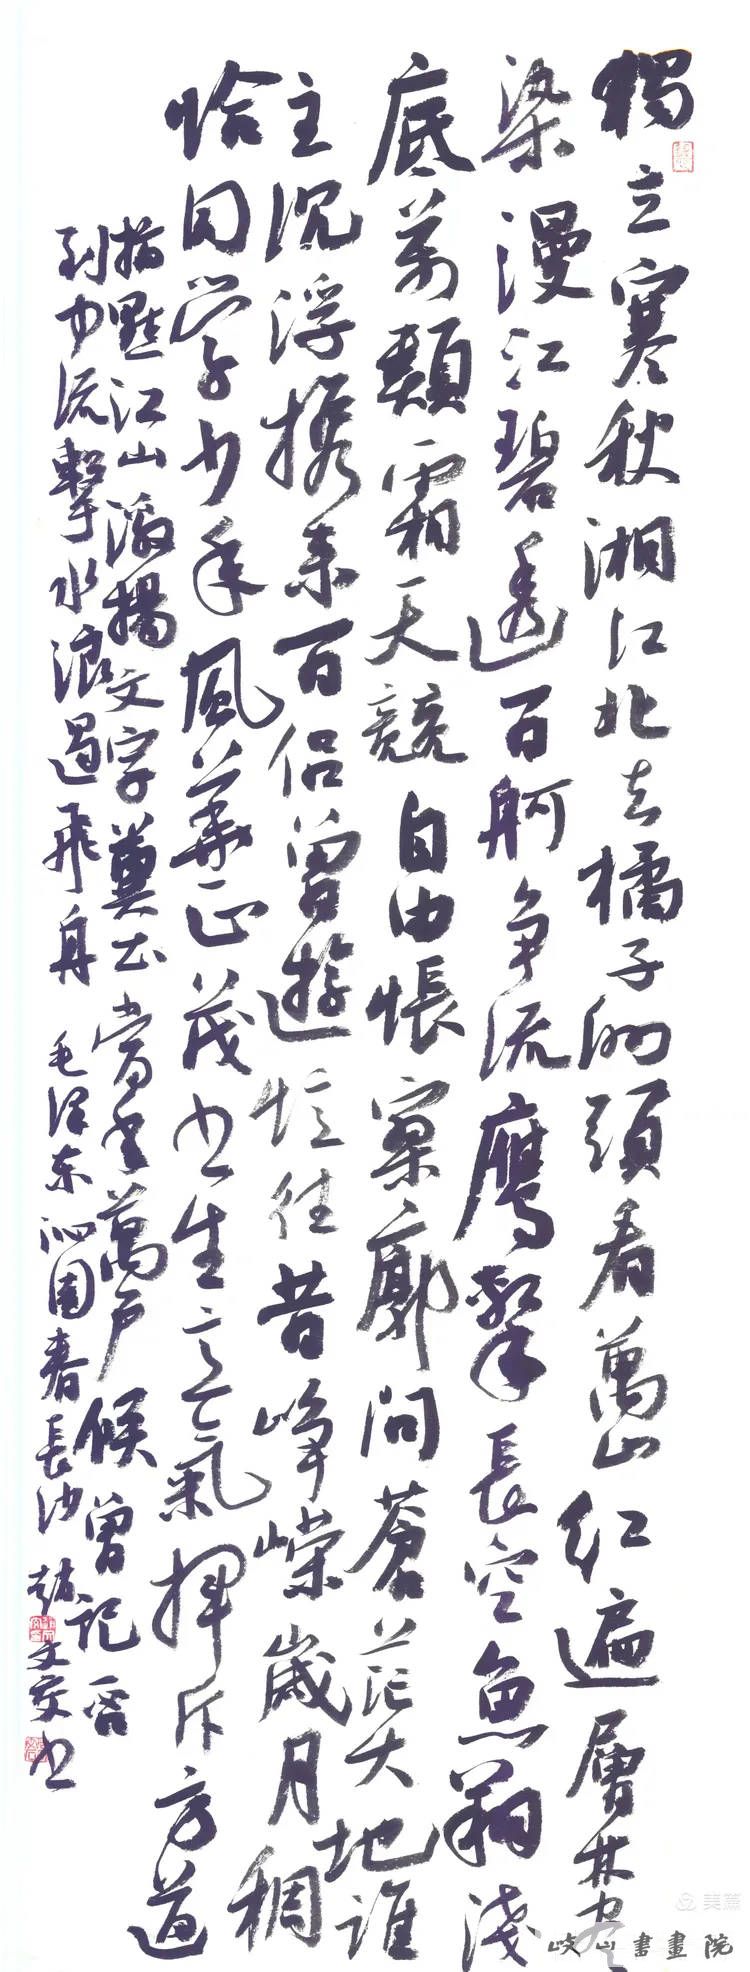 獨立寒秋湘江北去橘子洲頭看萬山红遍層林尽
染漫江碧透百舸争流鹰擊長空魚翔淺
底萬類霜天競自由悵寥廓问蒼茫大地誰
主沉浮携来百侣曾遊憶往昔峥嵘歲月稠
恰同学少年風華正茂书生意氣揮斥方遒
指點江山激揚文字糞土當年萬户侯曾記否
到中流擊水浪遏飛舟 毛泽东沁園春長沙 趙文书
美篇
岐山書畫院